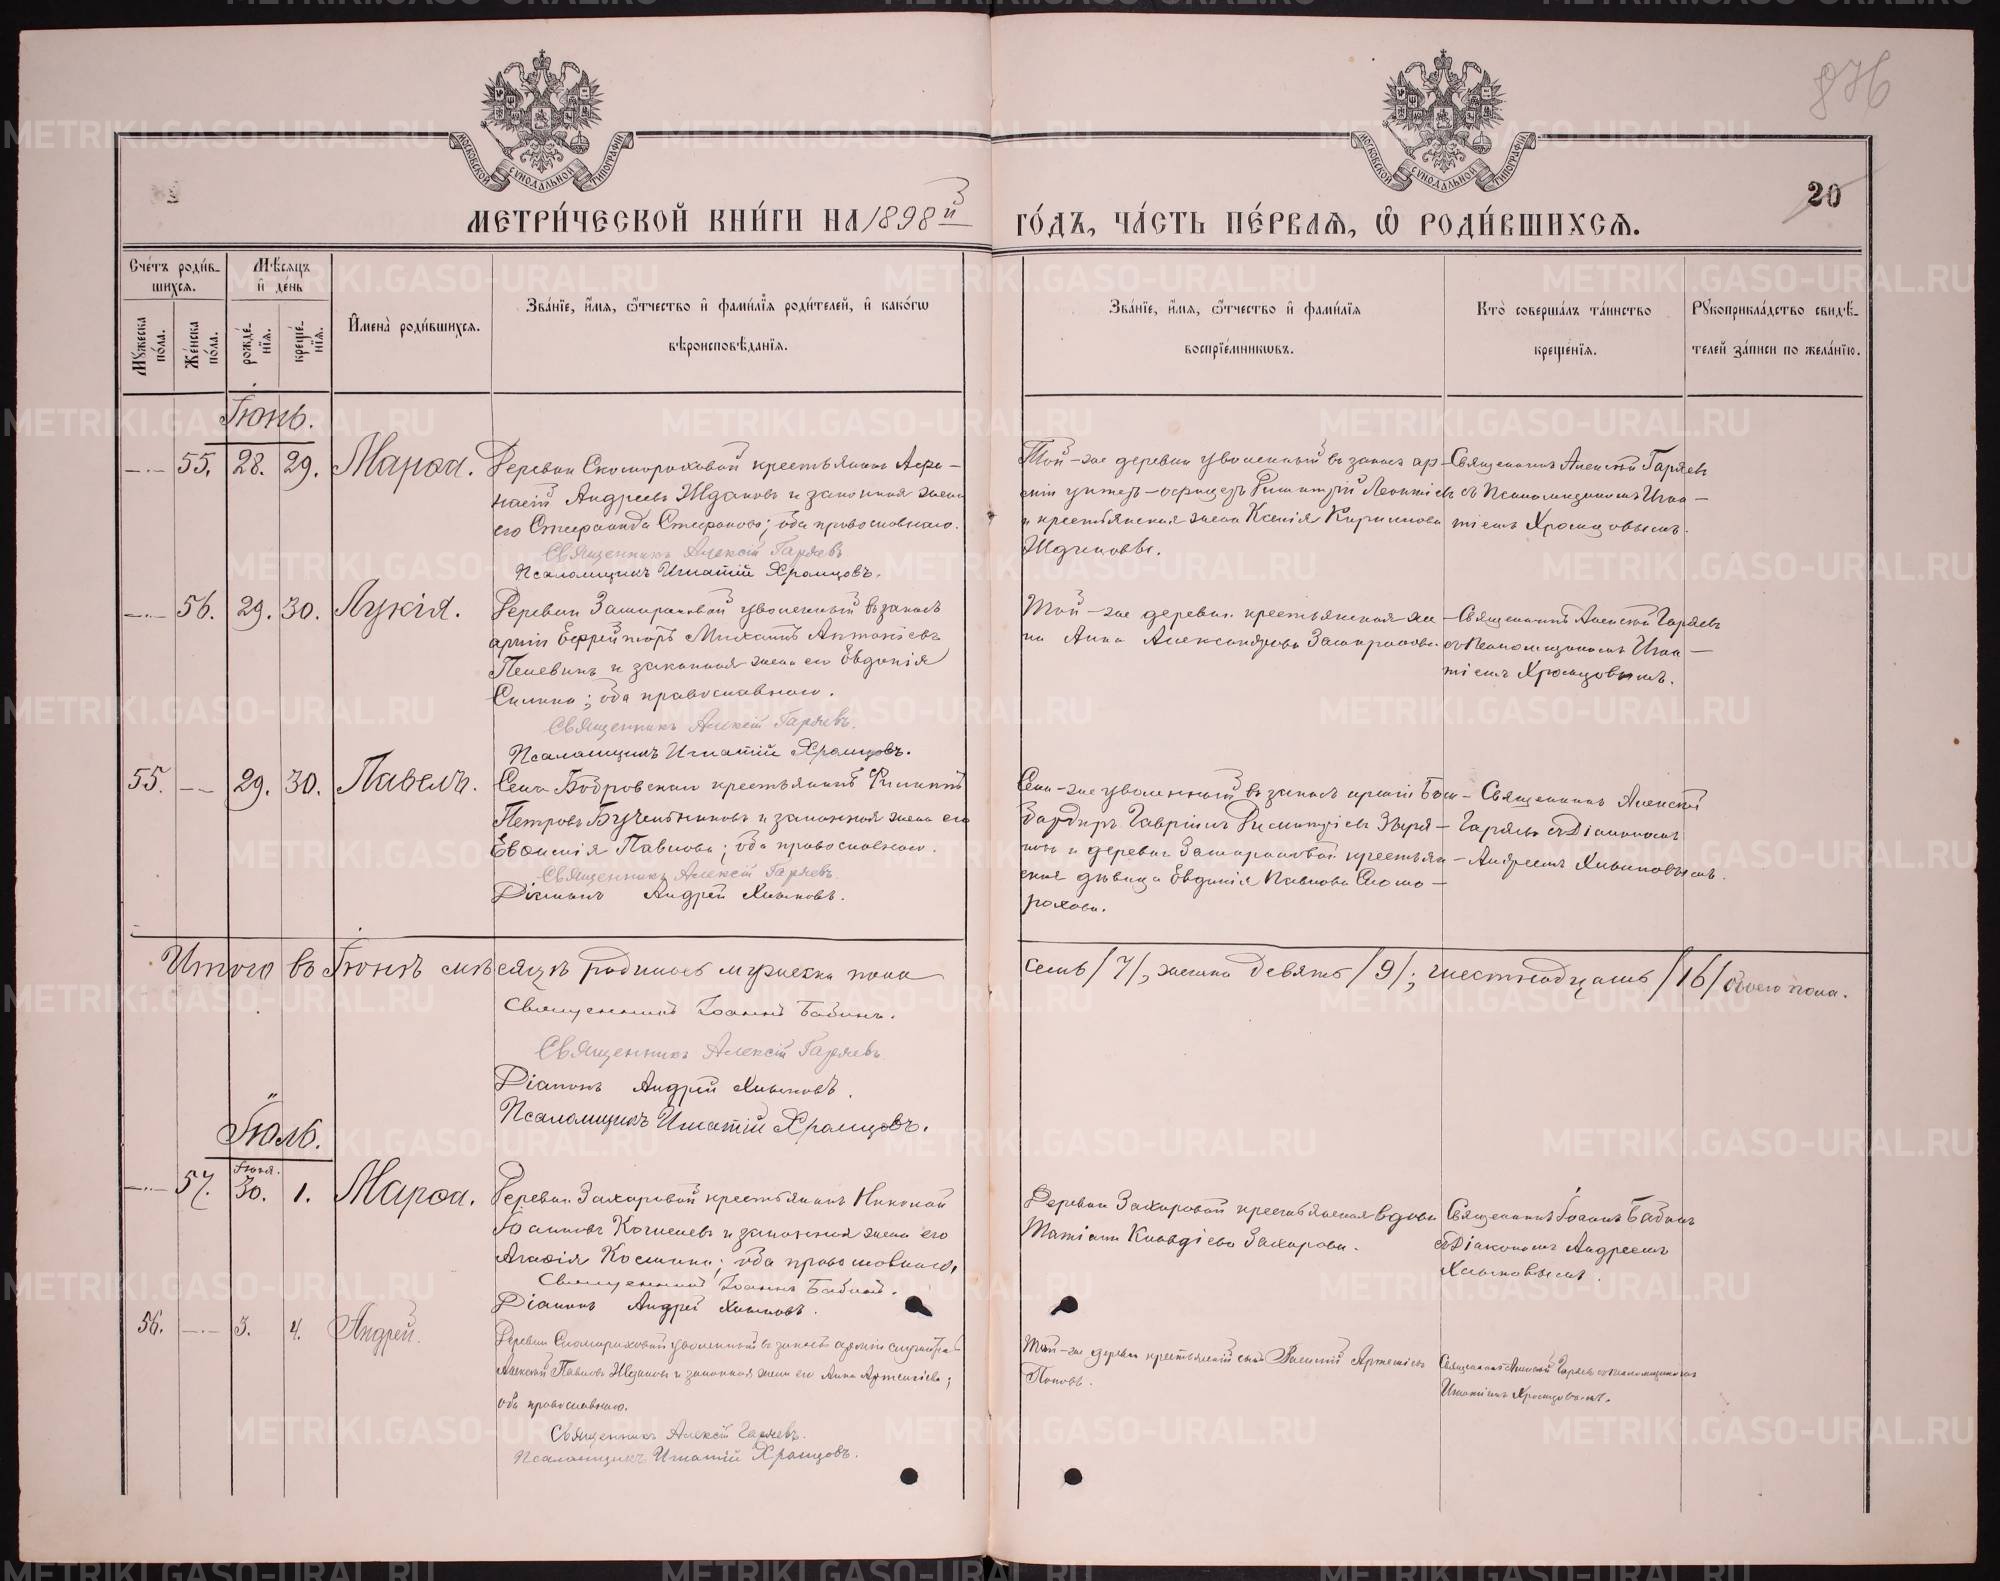 876
20
МОСКОВСКОЙ СУНОДАЛЬНОЙ ТИПОГРАФІИ
МОСКОВСКОЙ СУНОДАЛЬНОЙ ТИПОГРАФІИ
МЕТРИ́ЧЕСКОЙ КНИ́ГИ НА 1898й ГО́ДЪ, ЧА́СТЬ ПЕ́РВАЯ, Ѡ РОДИ́ВШИХСЯ.
Сче́тъ роди́в-
шихся.
Мѣ́сяцъ
и де́нь
Мꙋ́жеска
по́ла.
Же́нска
по́ла.
рожде́-
нїя.
креще́-
нїя.
Имена̀ роди́вшихся.
Зва́нїе, и́мя, ѻ́тчество и фами́лїя роди́телей, и како́гѡ
вѣроисповѣ́данїя.
Зва́нїе, и́мя, ѻ́тчество и фами́лїя
воспрїе́мникѡвъ.
Кто̀ соверша́лъ та́инство
креще́нїя.
Рꙋкоприкла́дство свидѣ́-
телей за́писи по жела́нїю.
Іюнь.
55. 28. 29. Марѳа. Деревни Скомороховой крестьянинъ Аѳа-
насій Андреевъ Ждановъ и законная жена
его Стефанида Стефанова; оба православнаго.
Священникъ Алексій Гаряевъ
Псаломщикъ Игнатій Храмцовъ.
Той-же деревни уволенный въ запасъ ар-
міи унтеръ-офицеръ Димитрій Леонтіевъ
и крестьянская жена Ксенія Кириллова
Ждановы.
Священникъ Алексій Гаряевъ
съ Псаломщикомъ Игна-
тіемъ Храмцовымъ.
56. 29. 30. Лукія. Деревни уволенный въ запасъ
арміи Ефрейторъ Михаилъ Антоніевъ
Пелевинъ и законная жена его Евдокія
Силина; оба православнаго.
Священникъ Алексій Гаряевъ.
Псаломщикъ Игнатій Храмцовъ.
Той-же деревни крестьянская же-
на Анна Александрова
Священникъ Алексій Гаряевъ
съ Псаломщикомъ Игна-
тіемъ Храмцовымъ.
55. 29. 30. Павелъ. Села Бобровскаго крестьянинъ Филиппъ
Петровъ Бучельниковъ и законная жена его
Евѳимія Павлова; оба православнаго.
Священникъ Алексій Гаряевъ
Діаконъ Андрей Хлыновъ.
Села-же уволенный въ запасъ арміи Бом-
бардиръ Гавріилъ Димитріевъ Звѣря-
ковъ и деревни крестьян-
ская дѣвица Евдокія Павлова Скомо-
рохова.
Священникъ Алексій
Гаряевъ съ Діакономъ
Андреемъ Хлыновымъ.
Итого въ Іюнѣ мѣсяцѣ родилось мужеска пола семь /7/, женска девять /9/; шестнадцать /16/ обоего пола.
Священникъ Іоаннъ Бабинъ.
Священникъ Алексій Гаряевъ
Діаконъ Андрей Хлыновъ.
Псаломщикъ Игнатій Храмцовъ.
Іюль.
Іюня.
57. 30. 1. Марѳа. Деревни Захаровой крестьянинъ Николай
Іоанновъ Кочневъ и законная жена его
Агаѳія Космина; оба православнаго.
Священникъ Іоаннъ Бабинъ.
Діаконъ Андрей Хлыновъ.
Деревни Захаровой крестьянская вдова
Татіана Клавдіева Захарова.
Священникъ Іоаннъ Бабинъ
съ Діакономъ Андреемъ
Хлыновымъ.
56. 3. 4. Андрей. Деревни Скомороховой уволенный въ запасъ арміи
Алексій Павловъ Ждановъ и законная жена его Анна Артеміева;
оба православнаго.
Священникъ Алексій Гаряевъ.
Псаломщикъ Игнатій Храмцовъ.
Той-же деревни крестьянскій сынъ Василій Артеміевъ
Поповъ.
Священникъ Алексій Гаряевъ съ Псаломщикомъ
Игнатіемъ Храмцовымъ.
METRIKI.GASO-URAL.RU